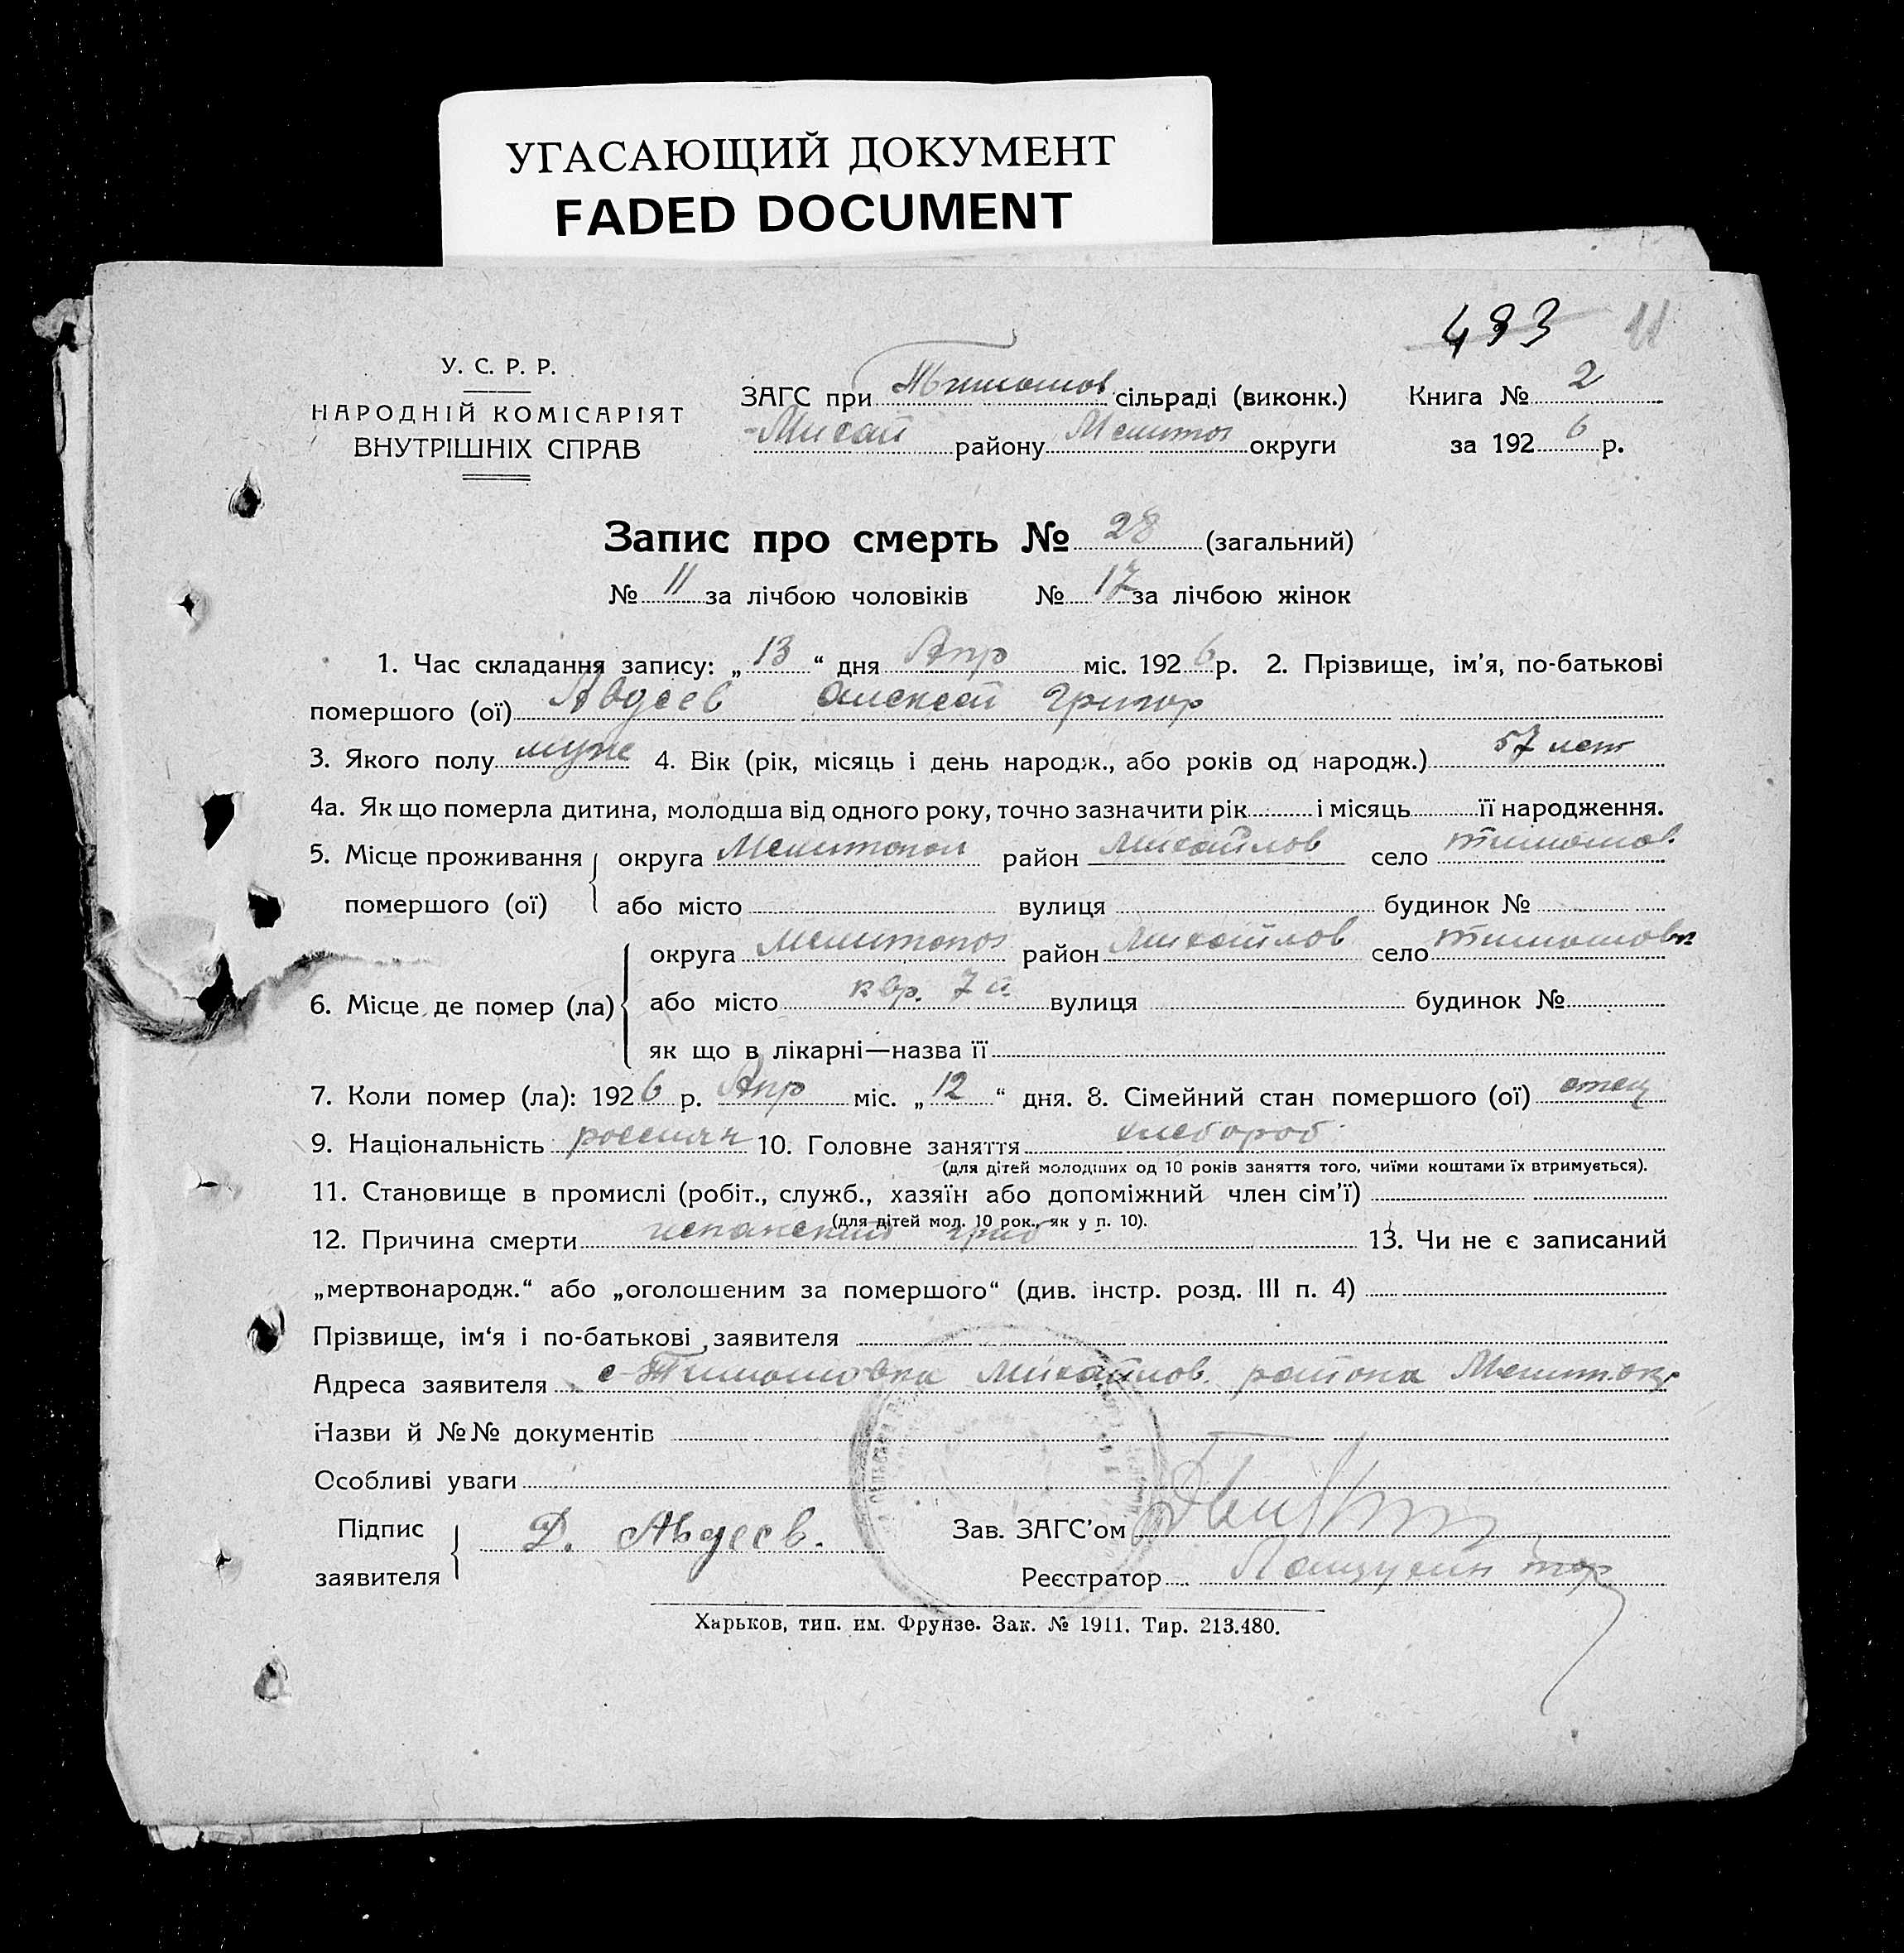 УГАСАЮЩИЙ ДОКУМЕНТ
FADED DOCUMENT
493 11
У. С. Р. Р.
НАРОДНІЙ КОМІСАРІЯТ
ВНУТРІШНІХ СПРАВ
ЗАГС при Тимошов сільраді (виконк.)
Михай району Мелитоп округи
Книга № 2
за 1926 р.
Запис про смерть № 28 (загальний)
№ 11 за лічбою чоловіків № 17 за лічбою жінок
1. Час складання запису: „ 13 “ дня Апр міс. 1926 р. 2. Прізвище, ім'я, по-батькові
помершого (ої) Авдеев Алексей Григор
3. Якого полу муже 4. Вік (рік, місяць і день народж., або років од народж.) 57 лет
4а. Як що померла дитина, молодша від одного року, точно зазначити рік і місяць її народження.
5. Місце проживання округа Мелитопол район Михайлов село Тимошов.
помершого (ої) або місто вулиця будинок №
округа Мелитопол район Михайлов село Тимошовк
6. Місце де помер (ла) або місто 7 вулиця будинок №
як що в лікарні—назва її
7. Коли помер (ла): 1926 р. Апр міс. „ 12 “ дня. 8. Сімейний стан помершого (ої) отец
9. Національність россиян 10. Головне заняття хлебороб
(для дітей молодших од 10 років заняття того, чиїми коштами їх втримується).
11. Становище в промислі (робіт., служб., хазяїн або допоміжний член сім'ї)
(для дітей мол. 10 рок., як у п. 10).
12. Причина смерти испанский грип 13. Чи не є записаний
„мертвонародж.“ або „оголошеним за помершого“ (див. інстр. розд. III п. 4)
Прізвище, ім'я і по-батькові заявителя
Адреса заявителя с-Тимошовка Михайлов. района Мелит.окр
Назви й №№ документів
Особливі уваги
Підпис
заявителя
Д. Авдеев.
Зав. ЗАГС'ом
Реєстратор
Харьков, тип. им. Фрунзе. Зак. № 1911. Тир. 213.480.